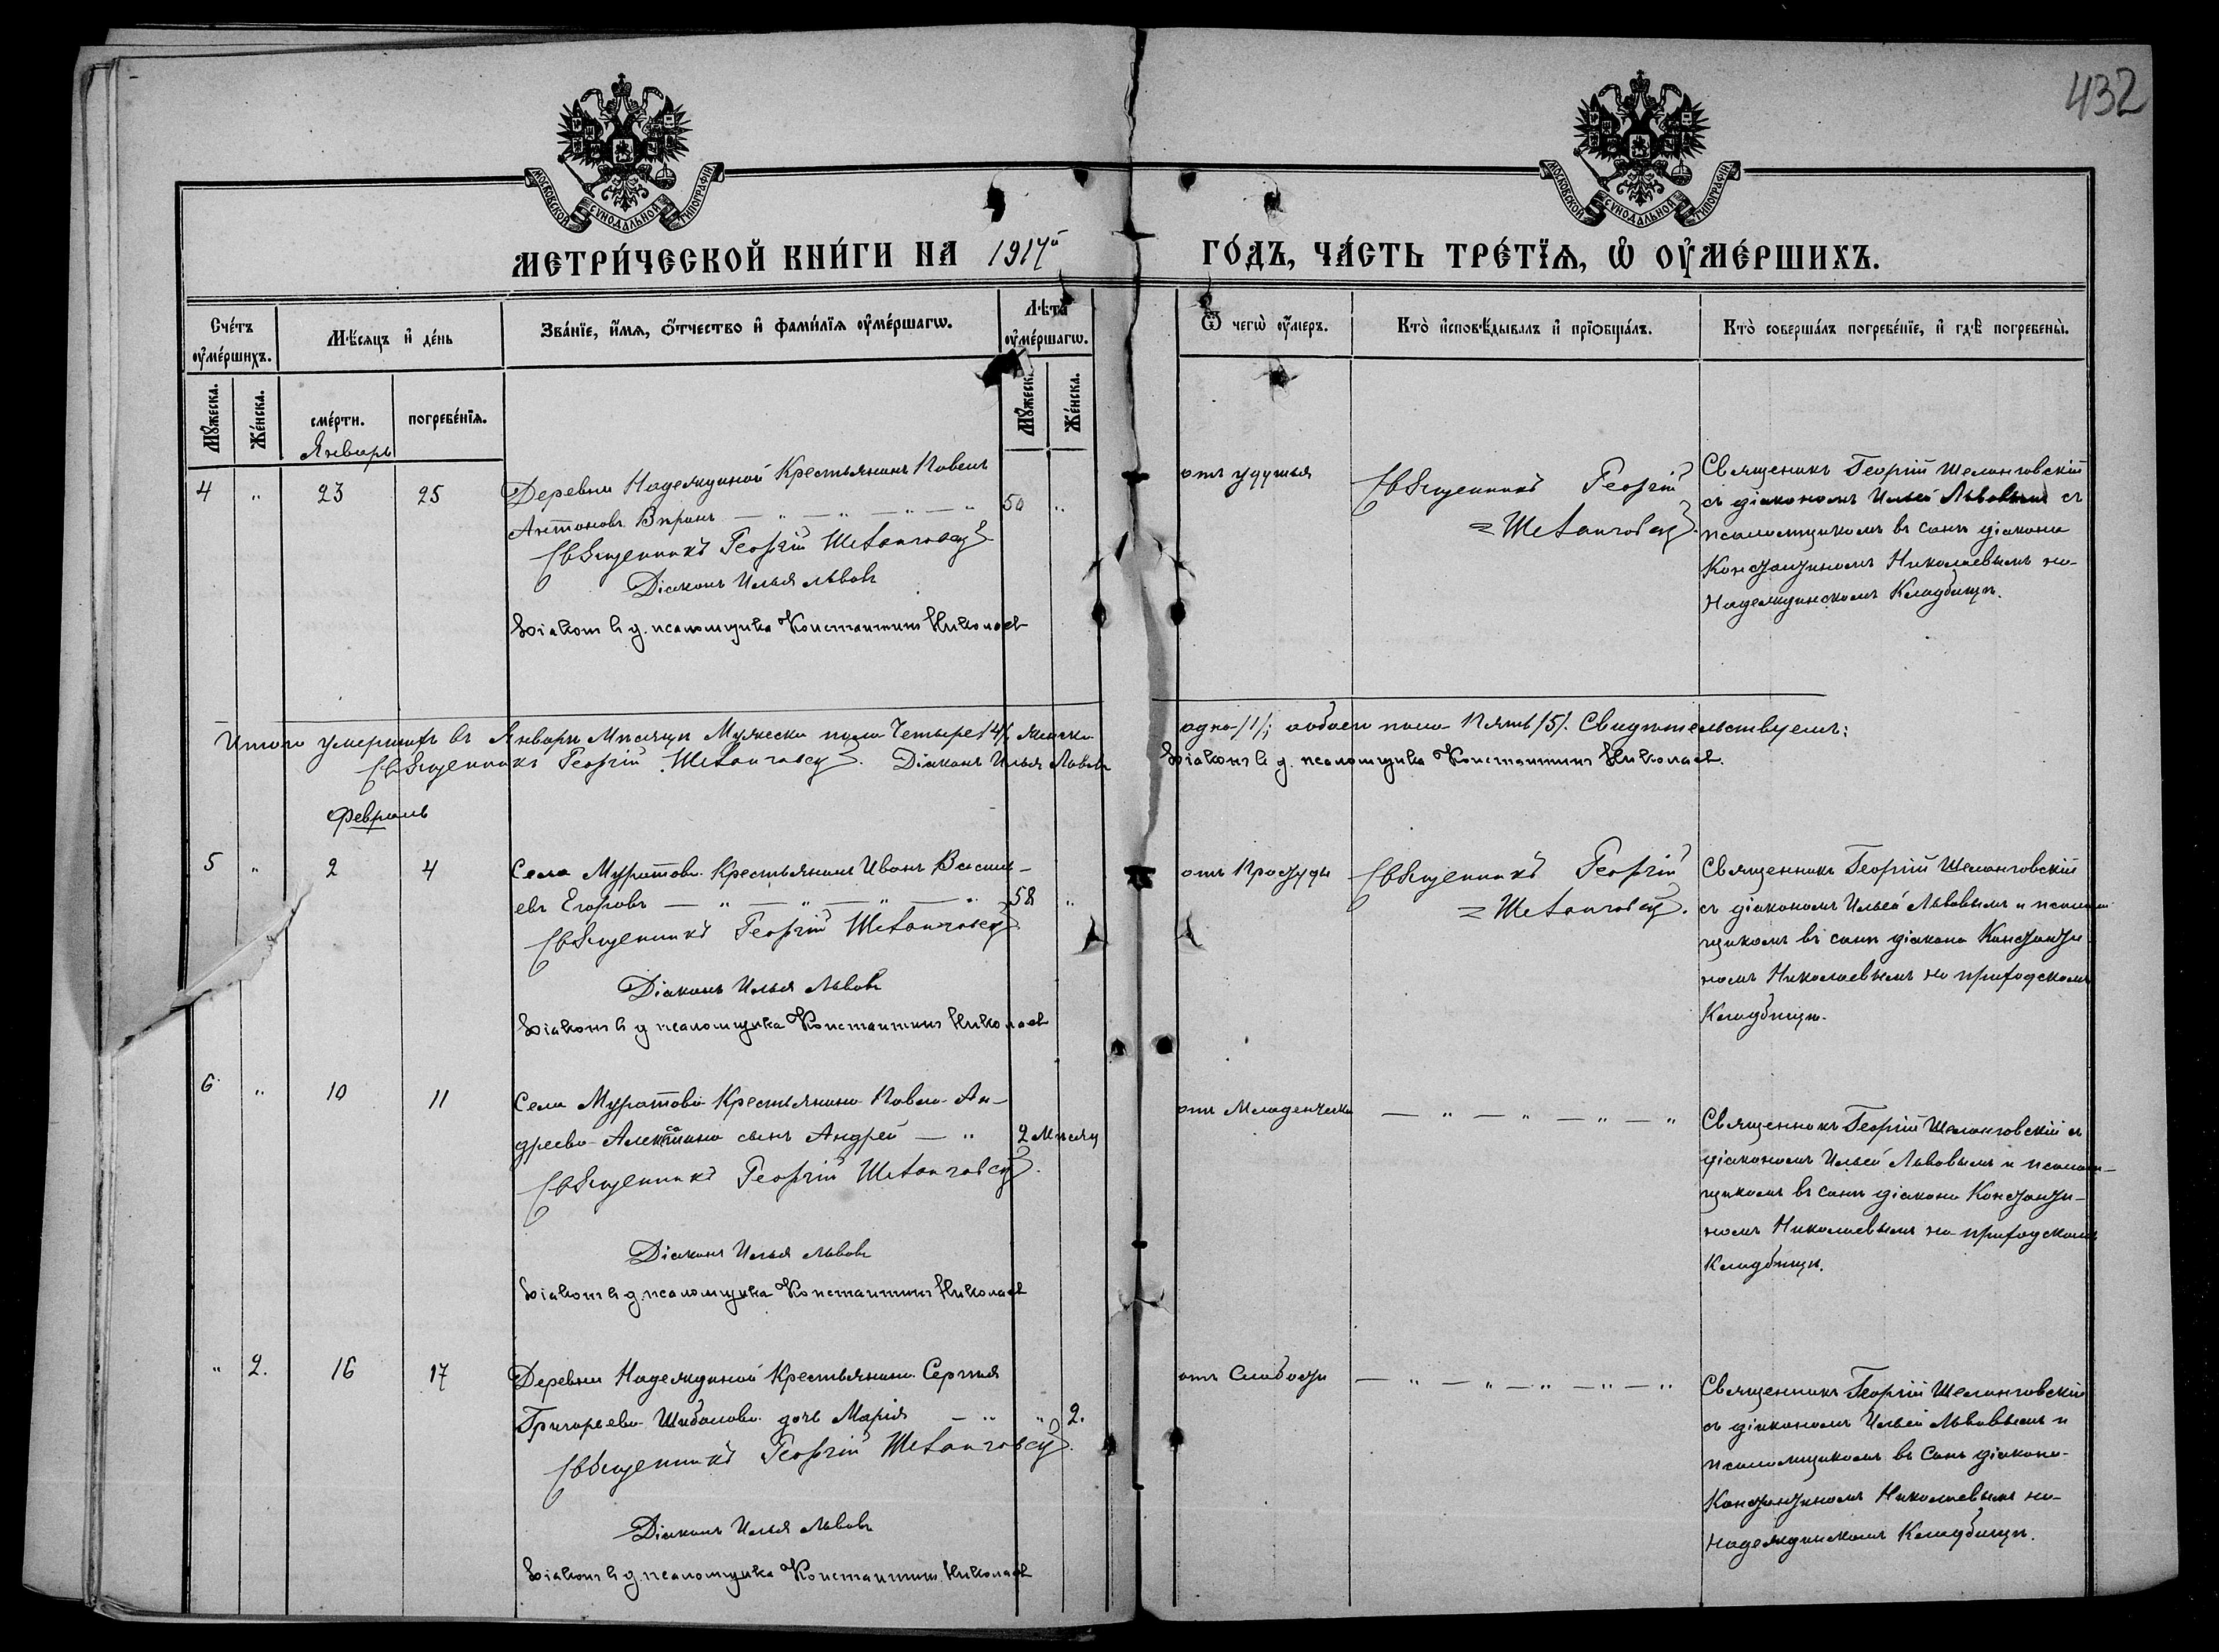 432
МОСКОВСКОЙ СѴНОДАЛЬНОЙ ТИПОГРАФІИ
МОСКОВСКОЙ СѴНОДАЛЬНОЙ ТИПОГРАФІИ
МЕТРИ́ЧЕСКОЙ КНИ́ГИ НА 1917й ГО́ДЪ, ЧА́СТЬ ТРЕ́ТЇѦ, Ѡ ОУМЕ́РШИХЪ.
Сче́тъ оуме́ршихъ.
Мѣ́сяцъ и де́нь
Зва́нїе, и́мя, о́тчество и фами́лїя оуме́ршагѡ.
Лѣта̀ оуме́ршагѡ.
Ѿ чегѡ̀ оу́меръ.
Кто̀ исповѣ́дывалъ и прїѡбща́лъ.
Кто̀ соверша́лъ погребе́нїе, и гдѣ̀ погребены̀.
Мꙋ́жеска.
Же́нска.
сме́рти.
погребе́нїя.
Мꙋ́жеск.
Же́нска.
Январь
4 " 23 25
Деревни Надеждиной Крестьянинъ Павелъ
Антоновъ — " — " — " — " 50 "
Священникъ Георгій
Діаконъ Илья Львовъ
Діаконъ н д. псаломщика Константинъ Николаев
отъ удушья
Священникъ Георгій
Священникъ Георгій
съ діакономъ Ильей Львовым съ
псаломщикомъ въ санѣ діакона
Константиномъ Николаевымъ на
Надеждинскомъ Кладбищѣ.
Итого умершихъ въ Январѣ Мѣсяцѣ Мужеска пола Четыре /4/, женска
одна /1/; обоего пола Пять /5/. Свидѣтельствуемъ:
Священникъ Георгій
Діаконъ Илья Львовъ
Діаконъ н д. псаломщика Константинъ Николаев.
Февраль
5 " 2 4
Села Муратова Крестьянинъ Иванъ Василь-
евъ Егоровъ — " — " — " — " 58 "
Священникъ Георгій
Діаконъ Илья Львовъ
Діаконъ н д псаломщика Константинъ Николаев
отъ Простуды
Священникъ Георгій
Священникъ Георгій
съ діакономъ Ильей Львовымъ и псалом
щикомъ въ санѣ діакона Константи-
номъ Николаевымъ на приходскомъ
Кладбищѣ.
6 " 10 11
Села Муратова Крестьянина Павла Ан-
дреева сынъ Андрей — " 2 Мѣсяц
Священникъ Георгій
Діаконъ Илья Львовъ
Діаконъ н д. псаломщика Константинъ Николаев
отъ Младенческ
— " — " — " — "
Священникъ Георгій съ
діакономъ Ильей Львовымъ и псалом-
щикомъ въ санѣ діакона Константи-
номъ Николаевымъ на приходскомъ
Кладбищѣ.
" 2. 16 17
Деревни Надеждиной Крестьянина Сергѣя
Григорьева Шабалова дочь Марія — " " 2.
Священникъ Георгій
Діаконъ Илья Львовъ
Діаконъ н д. псаломщика Константинъ Николаев
отъ Слабости
— " — " — " — " — "
Священникъ Георгій
съ діакономъ Ильей Львовымъ и
псаломщикомъ въ санѣ діакона
Константиномъ Николаевымъ на
Надеждинскомъ Кладбищѣ.